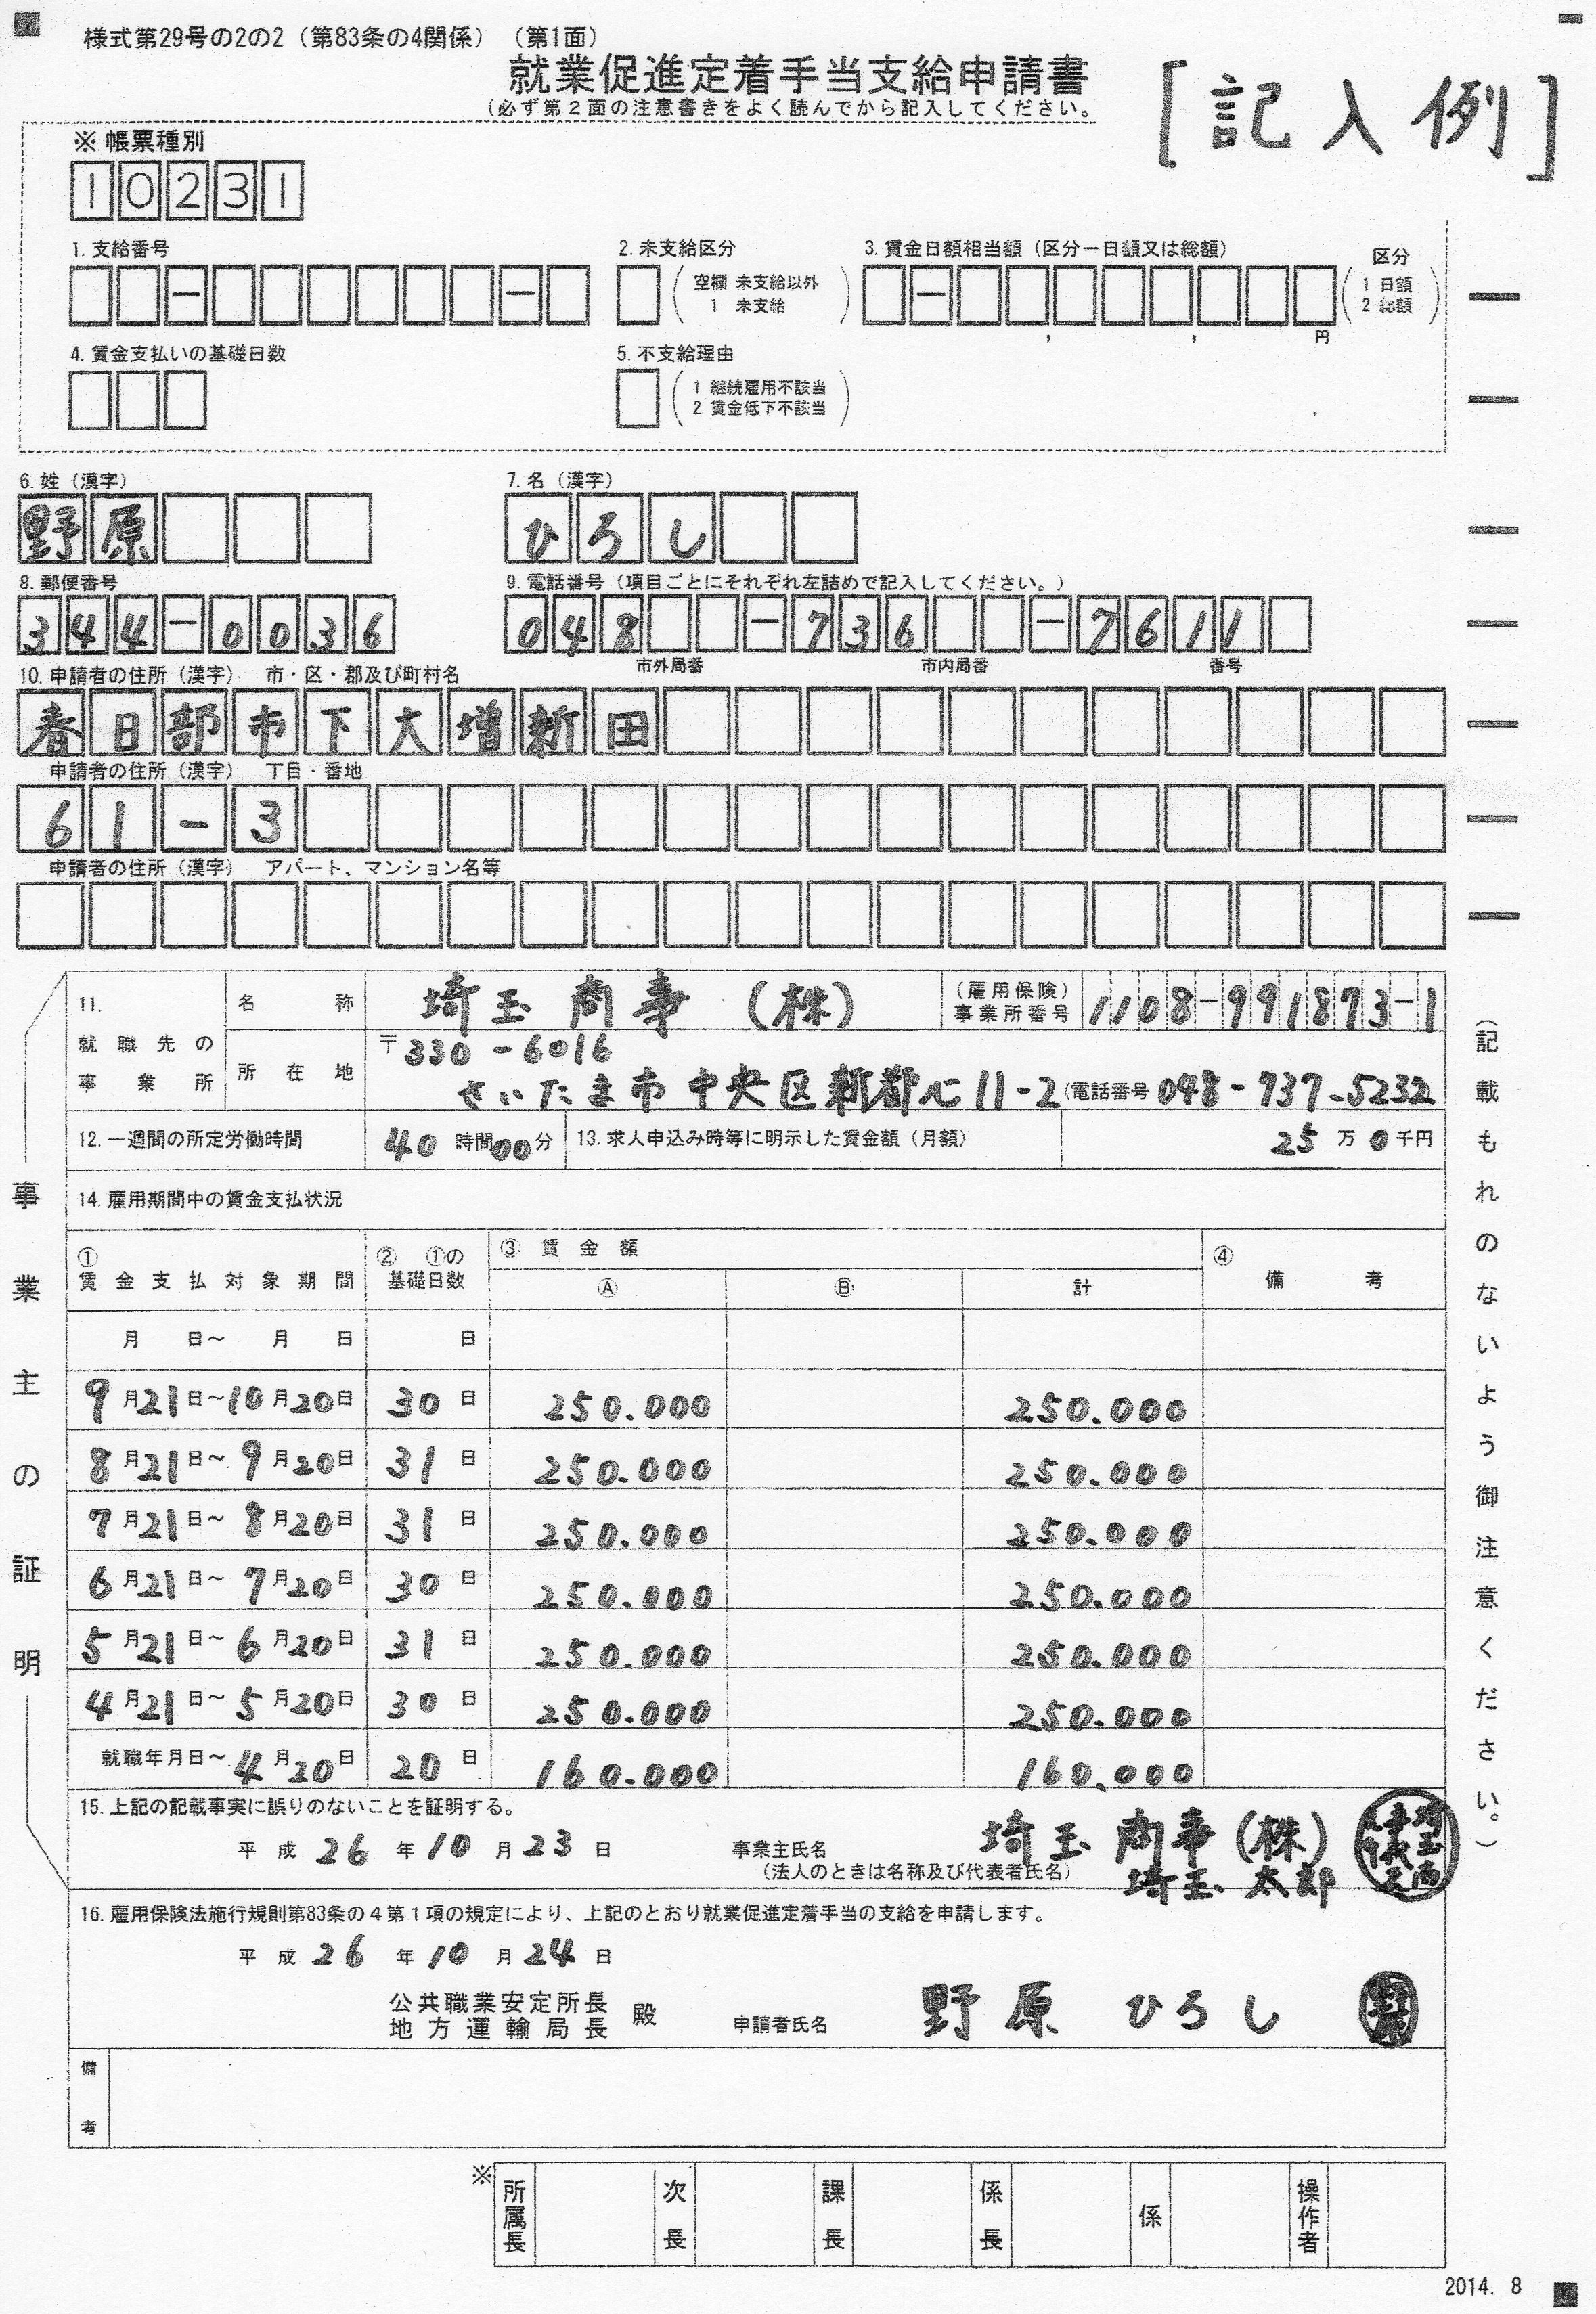 様式第29号の2の2（第83条の4関係）（第1面）
就業促進定着手当支給申請書
（必ず第2面の注意書きをよく読んでから記入してください。
[記入例]
※ 帳票種別
10231
1. 支給番号
2. 未支給区分
空欄 未支給以外
1 未支給
3. 賃金日額相当額（区分－日額又は総額）
円
区分
1 日額
2 総額
4. 賃金支払いの基礎日数
5. 不支給理由
1 継続雇用不該当
2 賃金低下不該当
6. 姓（漢字）
野原
7. 名（漢字）
ひろし
8. 郵便番号
344-0036
9. 電話番号（項目ごとにそれぞれ左詰めで記入してください。）
048 - 736 - 7611
市外局番 市内局番 番号
10. 申請者の住所（漢字） 市・区・郡及び町村名
春日部市下大増新田
申請者の住所（漢字） 丁目・番地
61-3
申請者の住所（漢字） アパート、マンション名等
事業主の証明
11. 就職先の事業所
名称 埼玉商事（株）
（雇用保険）事業所番号 1108-991873-1
所在地 〒330-6016
さいたま市中央区新都心11-2（電話番号 048-737-5232
12. 一週間の所定労働時間 40時間00分
13. 求人申込み時等に明示した賃金額（月額） 25万0千円
14. 雇用期間中の賃金支払状況
① 賃金支払対象期間 ② ①の基礎日数 ③ 賃金額 ④ 備考
Ⓐ Ⓑ 計
月 日～ 月 日 日
9月21日～10月20日 30日 250.000 250.000
8月21日～9月20日 31日 250.000 250.000
7月21日～8月20日 31日 250.000 250.000
6月21日～7月20日 30日 250.000 250.000
5月21日～6月20日 31日 250.000 250.000
4月21日～5月20日 30日 250.000 250.000
就職年月日～4月20日 20日 160.000 160.000
15. 上記の記載事実に誤りのないことを証明する。
平成26年10月23日 事業主氏名 埼玉商事（株）
（法人のときは名称及び代表者氏名） 埼玉太郎
16. 雇用保険法施行規則第83条の4第1項の規定により、上記のとおり就業促進定着手当の支給を申請します。
平成26年10月24日
公共職業安定所長
地方運輸局長 殿
申請者氏名 野原 ひろし 野原
備考
※ 所属長 次長 課長 係長 係 操作者
（記載もれのないよう御注意ください。）
2014. 8